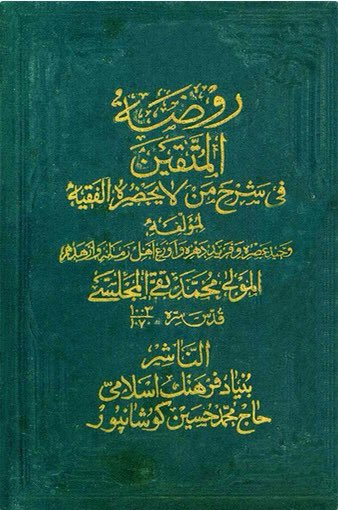 روضة
المتقين
فی شرح من لا یحضره الفقیه
لمؤلفه
وحید عصره و فرید دهره و اورع اهل زمانه و ازهدهم
المولی محمد تقی المجلسی
قدس سره ۱۰۰۳ ۱۰۷۰
الناشر
بنیاد فرهنك اسلامی
حاج محمد حسین كوشانپور